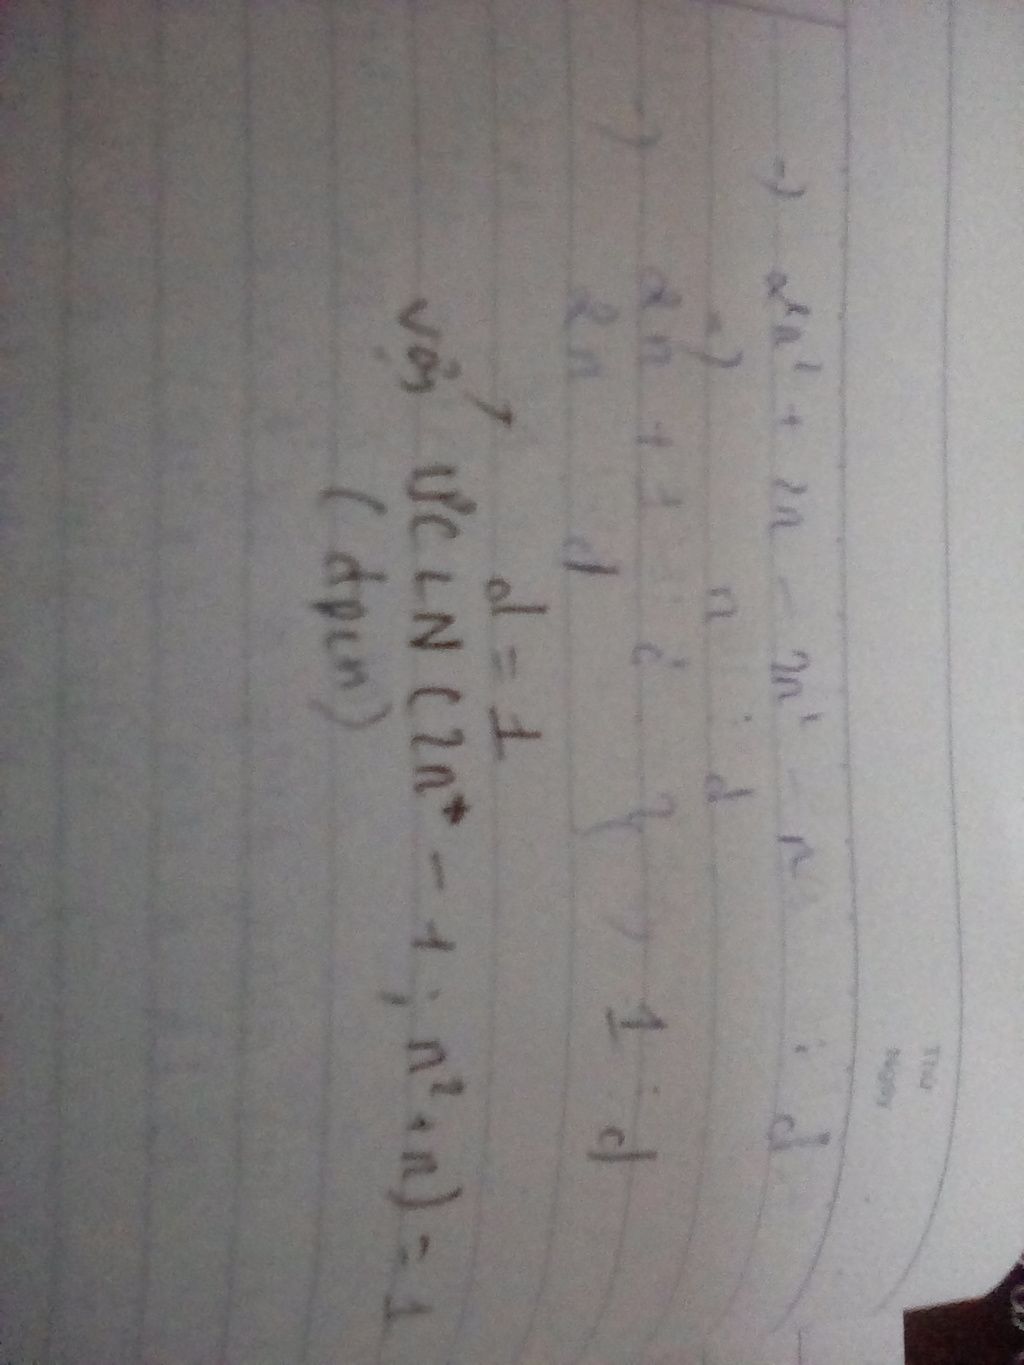 =) 2n² + 2n - 2n² - n ⋮ d
=) n ⋮ d
=) 2n + 1 ⋮ d } =) 1 ⋮ d
2n ⋮ d
=) d = 1
Vậy ƯCLN (2n + 1 ; n² + n) = 1
(đpcm)